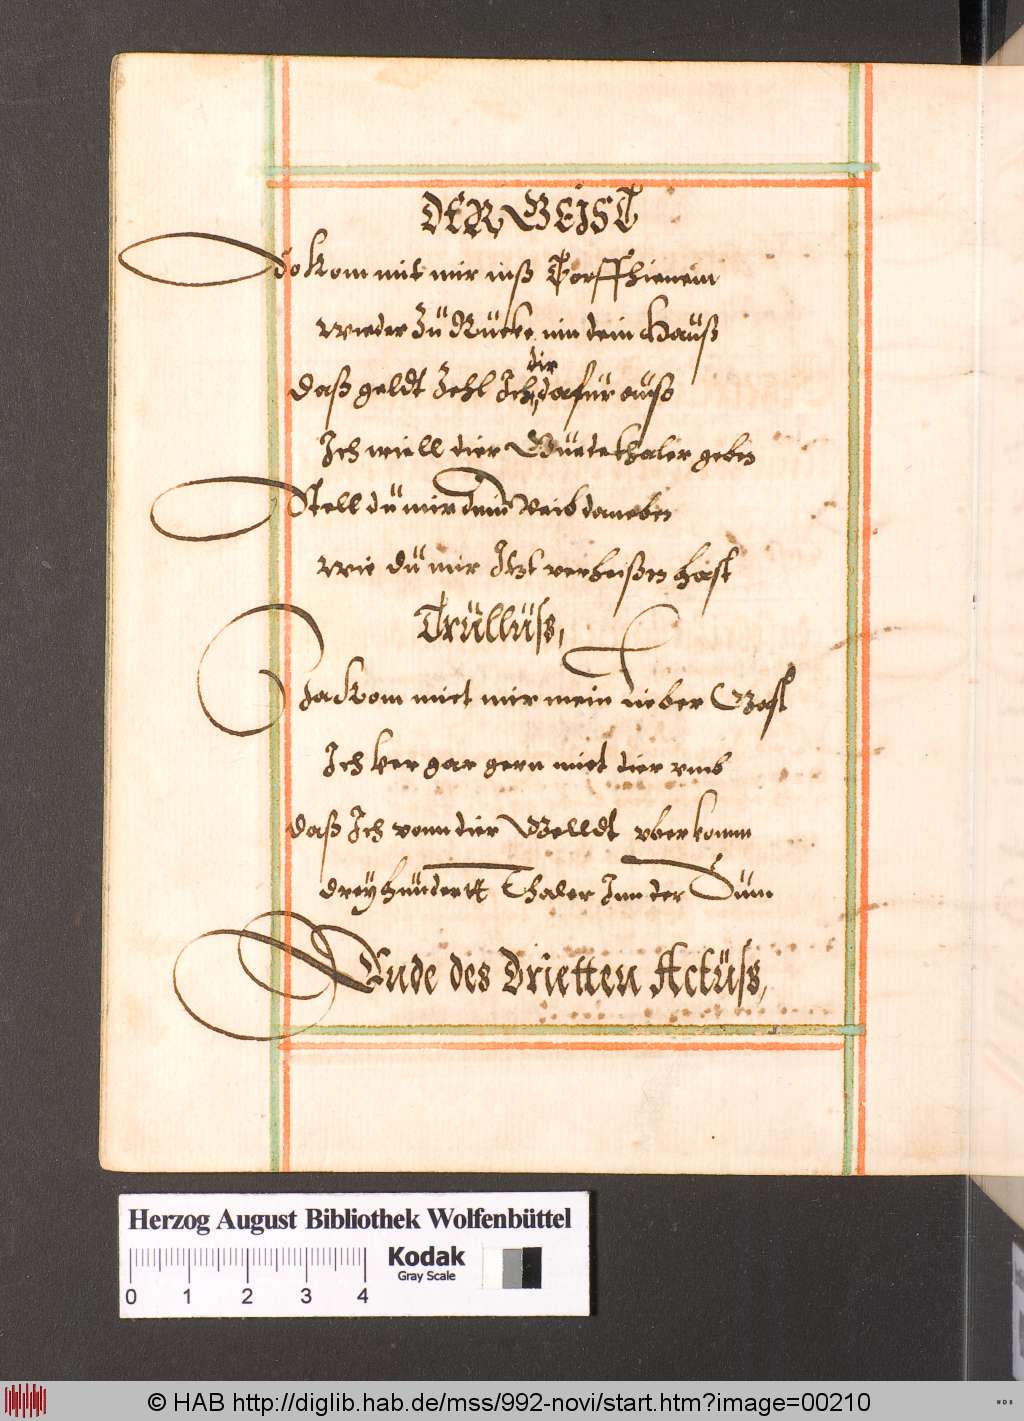 DER GEIST
So Kom mit mir inß Dorff hienein
Wieder Zü Rücke, inn dein Hauß
dir
Daß geldt Zehl Ich dafür auß
Ich will dier Guete thaler geben
Stell du mir dein Weib daneben
Wie du mir Itzt verheißen hast
Trüllüß,
Ja Kom miet mir mein lieber Gast
Ich ker gar gern miet dier vmb
Daß Ich vonn dier Gelldt vberkomm
dreyhundertt Thaler Inn der Sum
Ende des Drietten Actüß,
Herzog August Bibliothek Wolfenbüttel
Kodak
Gray Scale
0 1 2 3 4
© HAB http://diglib.hab.de/mss/992-novi/start.htm?image=00210